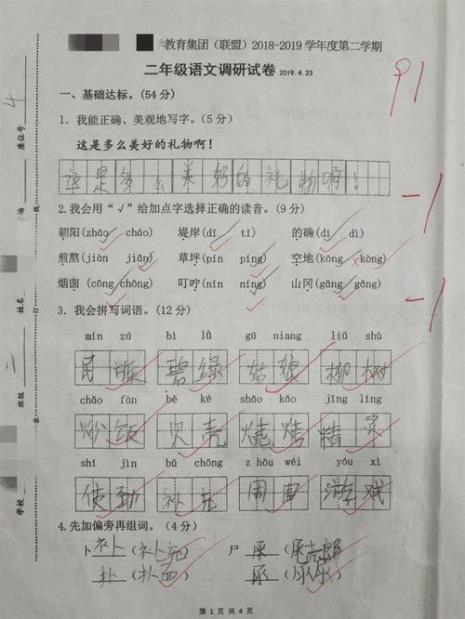 教育集团（联盟）2018-2019 学年度第二学期
二年级语文调研试卷 2019.4.23
91
一、基础达标。(54 分)
1. 我能正确、美观地写字。(5 分)
这是多么美好的礼物啊！
这是多么美好的礼物啊！
-1
2. 我会用“√”给加点字选择正确的读音。(9 分)
朝阳(zhāo cháo) 堤岸(dī tī) 的确(dí dì)
煎熬(jiān jiān) 草坪(pín píng) 空地(kōng kòng)
-1
烟囱(cōng chōng) 叮咛(nín níng) 山冈(gāng gǎng)
3. 我会拼写词语。(12 分)
mín zú bì lǜ gū niang liǔ shù
民族 碧绿 姑娘 柳树
chǎo fàn bèi ké shāo kǎo jīng líng
炒饭 贝壳 烧烤 精灵
shǐ jìn bǔ chōng zhōu wéi yóu xì
使劲 补充 周围 游戏
4. 先加偏旁再组词。(4 分)
卜 补 (补充) 尸 屎 (屎壳郎)
扑 (扑面)
第 1 页 共 4 页
座位号 4
考场
姓名
班级 二
学校